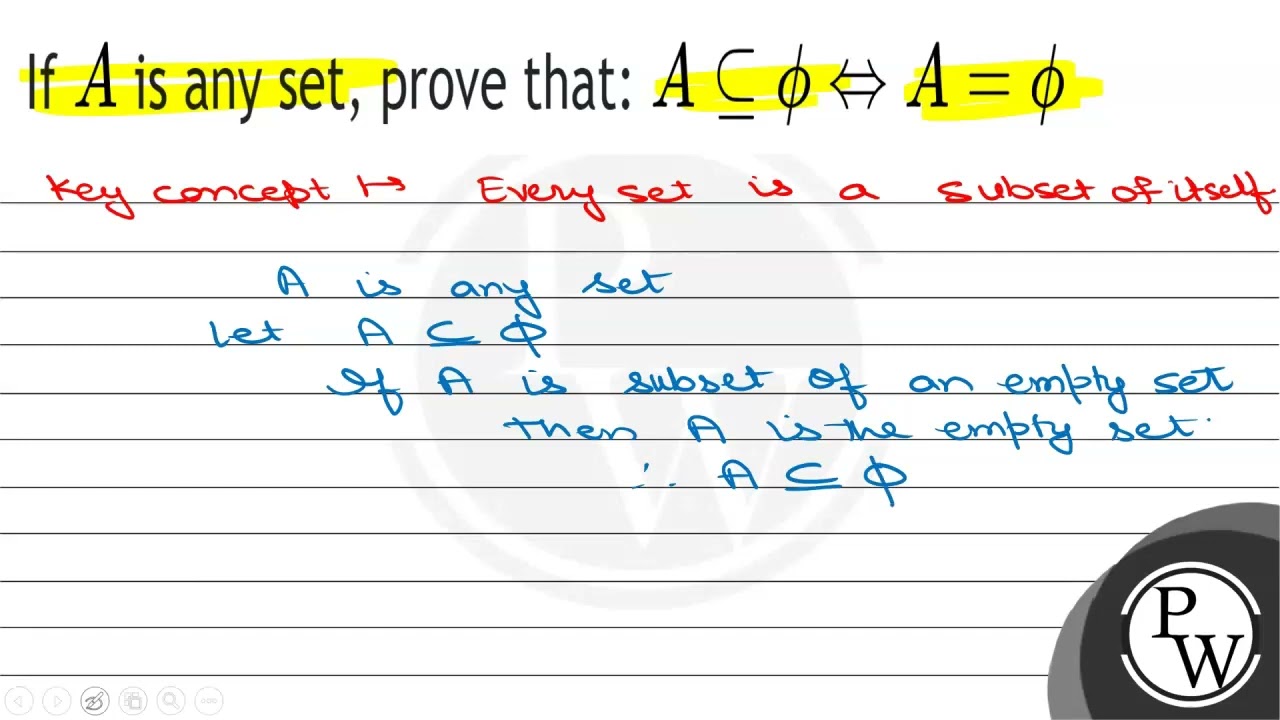 If A is any set, prove that: A ⊆ ϕ ⇔ A = ϕ
Key concept ↦ Every set is a subset of itself
A is any set
Let A ⊆ ϕ
If A is subset of an empty set
then A is the empty set.
∴ A ⊆ ϕ
P
W